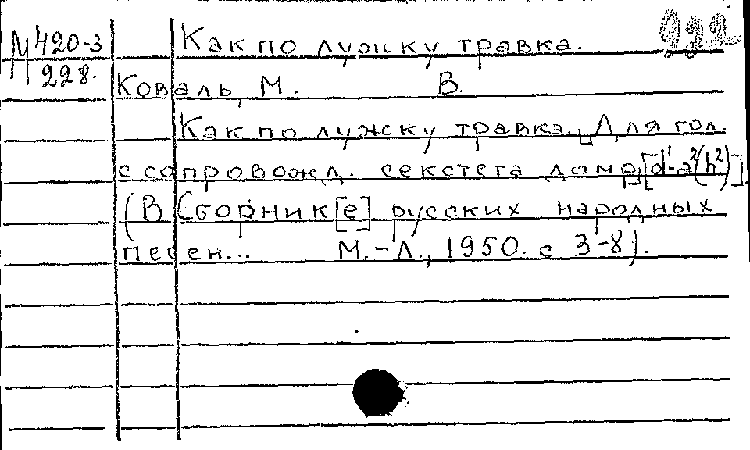 М 420-3
228.
Как по лужку травка.
Коваль, М. В
Как по лужку травка. Для гол.
с сопровожд. секстета домр [d¹-a²(h²)]
(В Сборник[е] русских народных
песен... М.-Л., 1950. с 3-8).